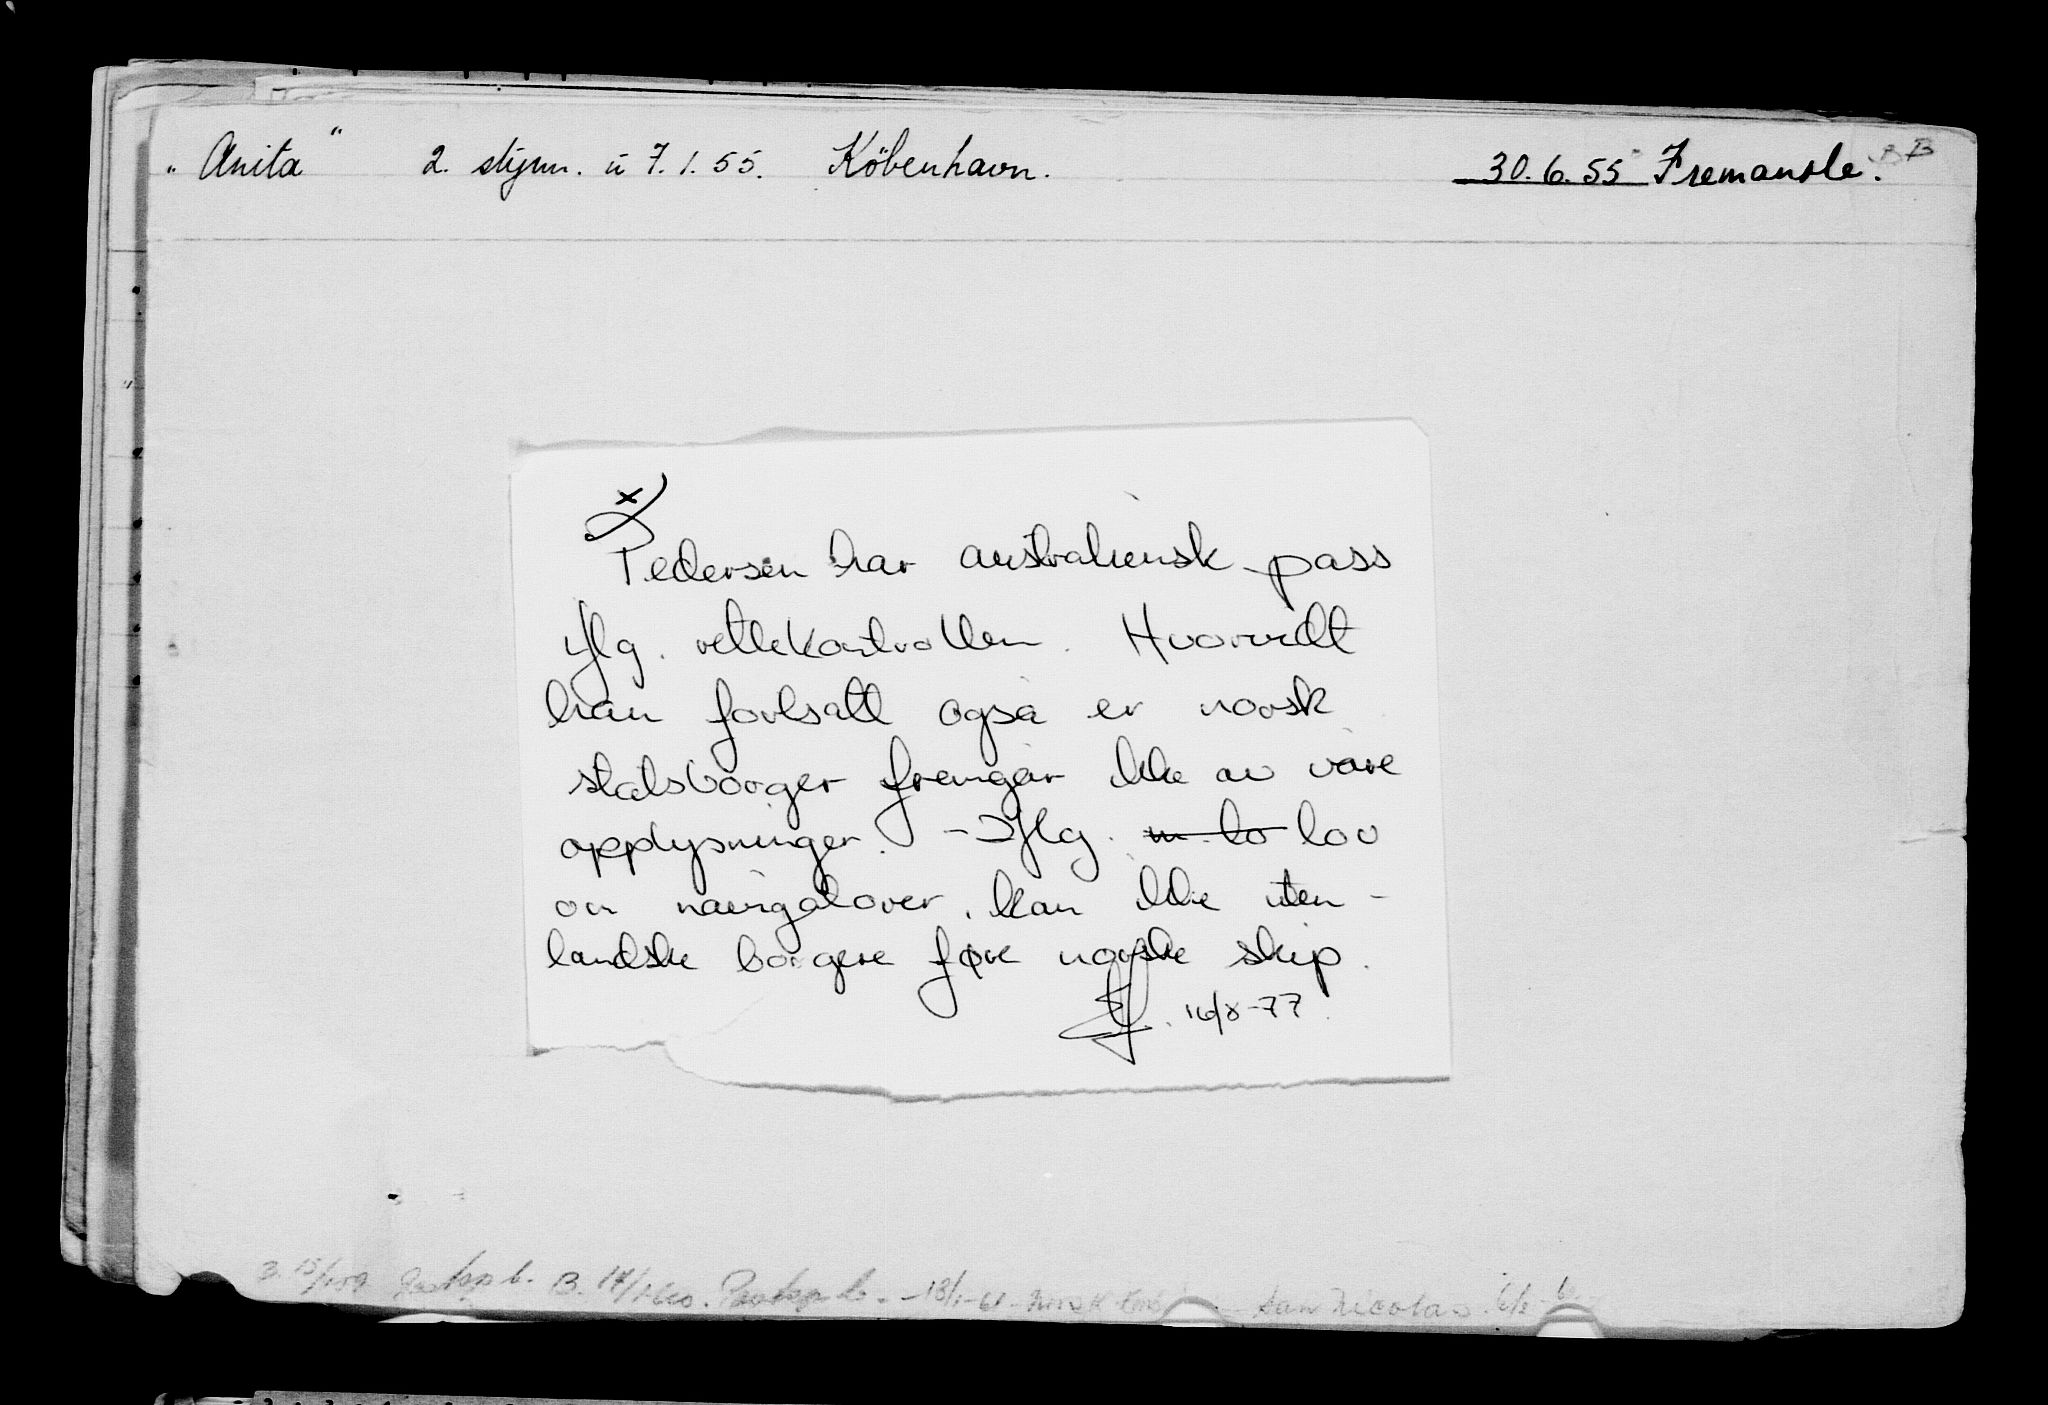 „Anita" 2. styrm. ü 7.1.55. Köbenhavn. 30.6.55 Fremantle.
x)
Pedersen har australiensk pass
iflg. rettekontrollen. Hvorvidt
han fortsatt også er norsk
statsborger fremgår ikke av våre
opplysninger. - Iflg. lov
om navigatører, kan ikke uten-
landske borgere føre norske skip.
16/8-77
San Nicolas